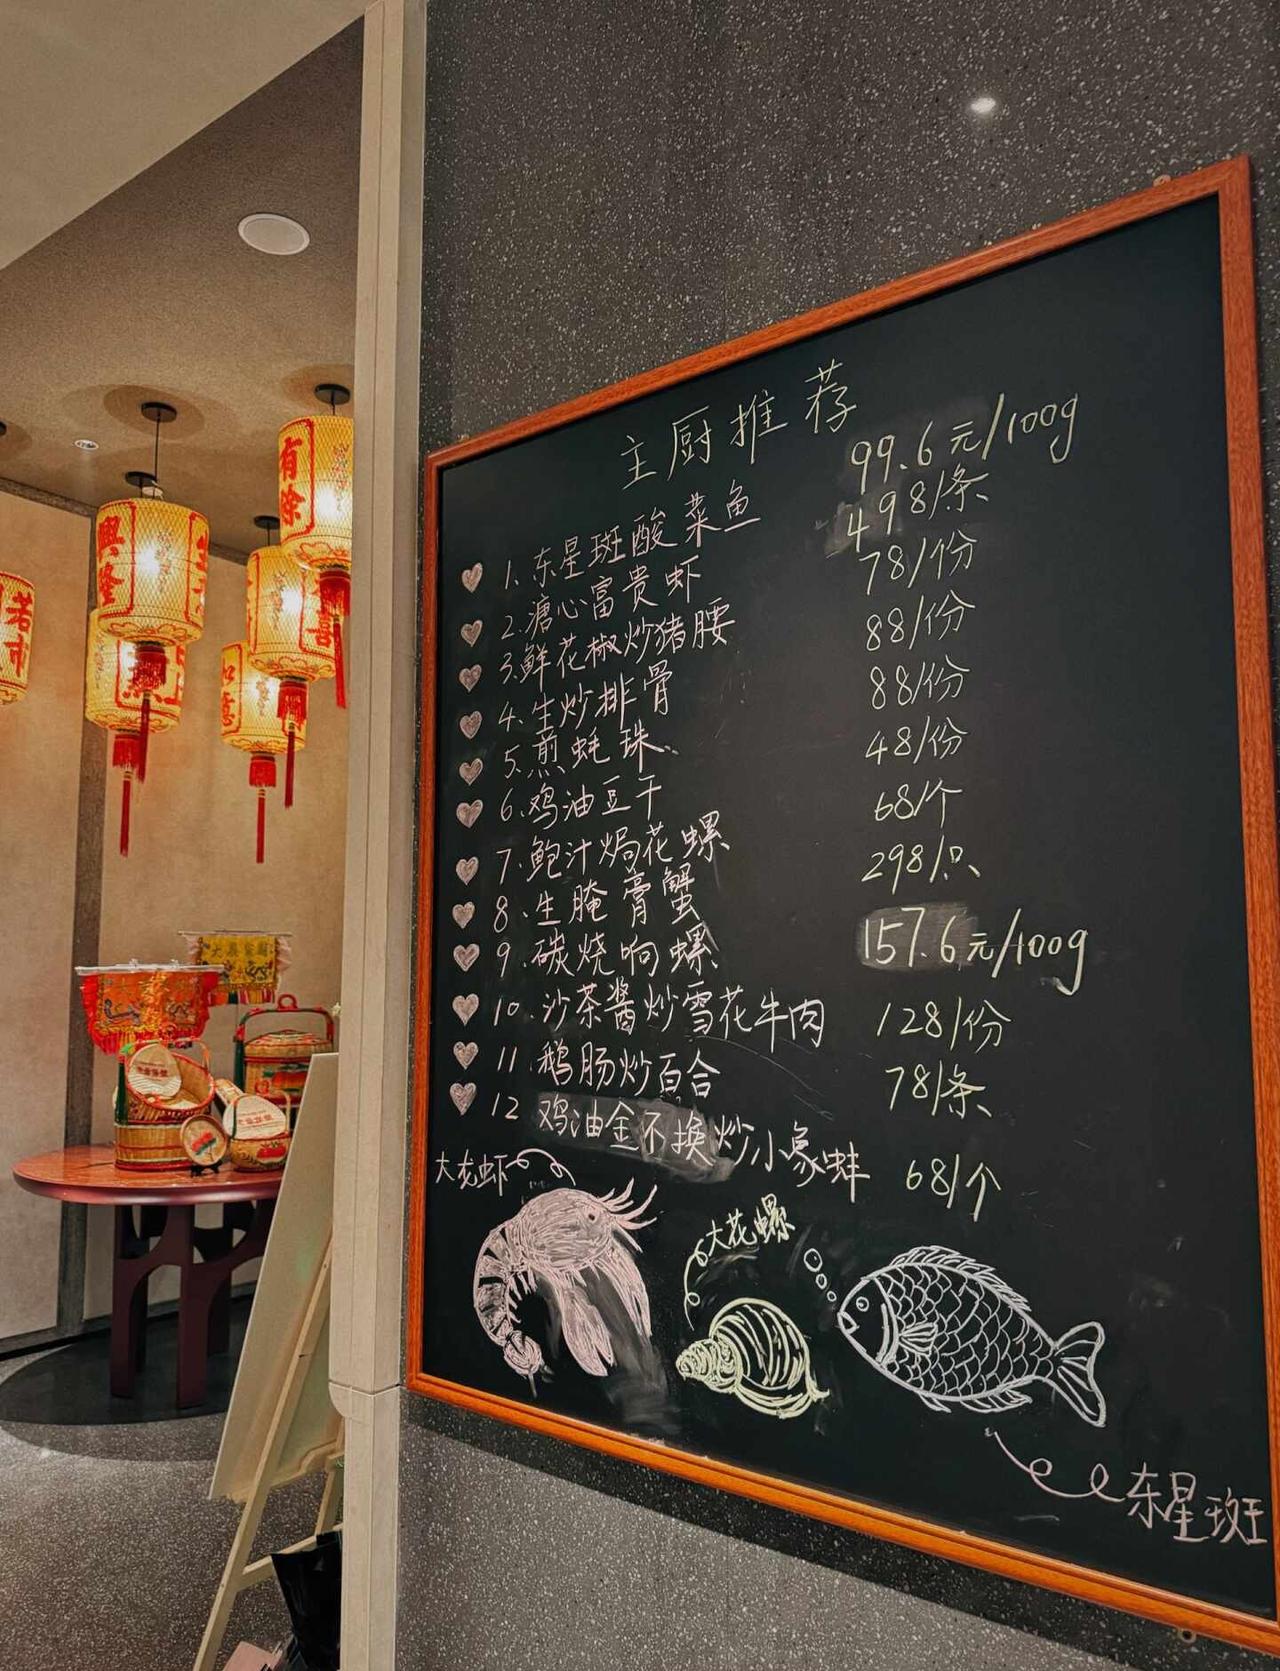 主厨推荐
1、东星斑酸菜鱼 99.6元/100g
2.溏心富贵虾 498/条
3.鲜花椒炒猪腰 78/份
4.生炒排骨 88/份
5.煎蚝珠 88/份
6.鸡油豆干 48/份
7.鲍汁焗花螺 68/个
8.生腌膏蟹 298/只
9.碳烧响螺 157.6元/100g
10.沙茶酱炒雪花牛肉 128/份
11.鹅肠炒百合 78/条
12 鸡油金不换炒小象蚌 68/个
大龙虾
大花螺
东星斑
有餘
興隆
若市
如意
喜